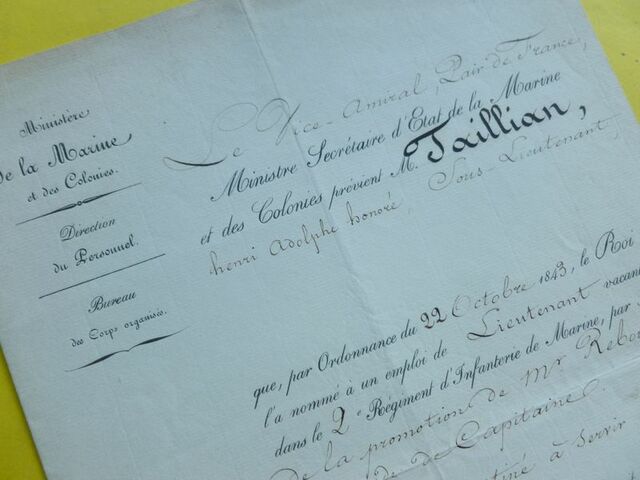 Ministère
de la Marine
et des Colonies.
Direction
du Personnel.
Bureau
des Corps organisés.
Le Vice-Amiral, Pair de France,
Ministre Secrétaire d'Etat de la Marine
et des Colonies prévient M. Taillian,
henri Adolphe honoré, Sous-Lieutenant,
que, par Ordonnance du 22 Octobre 1843, le Roi
l'a nommé à un emploi de Lieutenant vacant
dans le 2e Régiment d'Infanterie de Marine, par
de la promotion de Mr
de Capitaine.
à servir